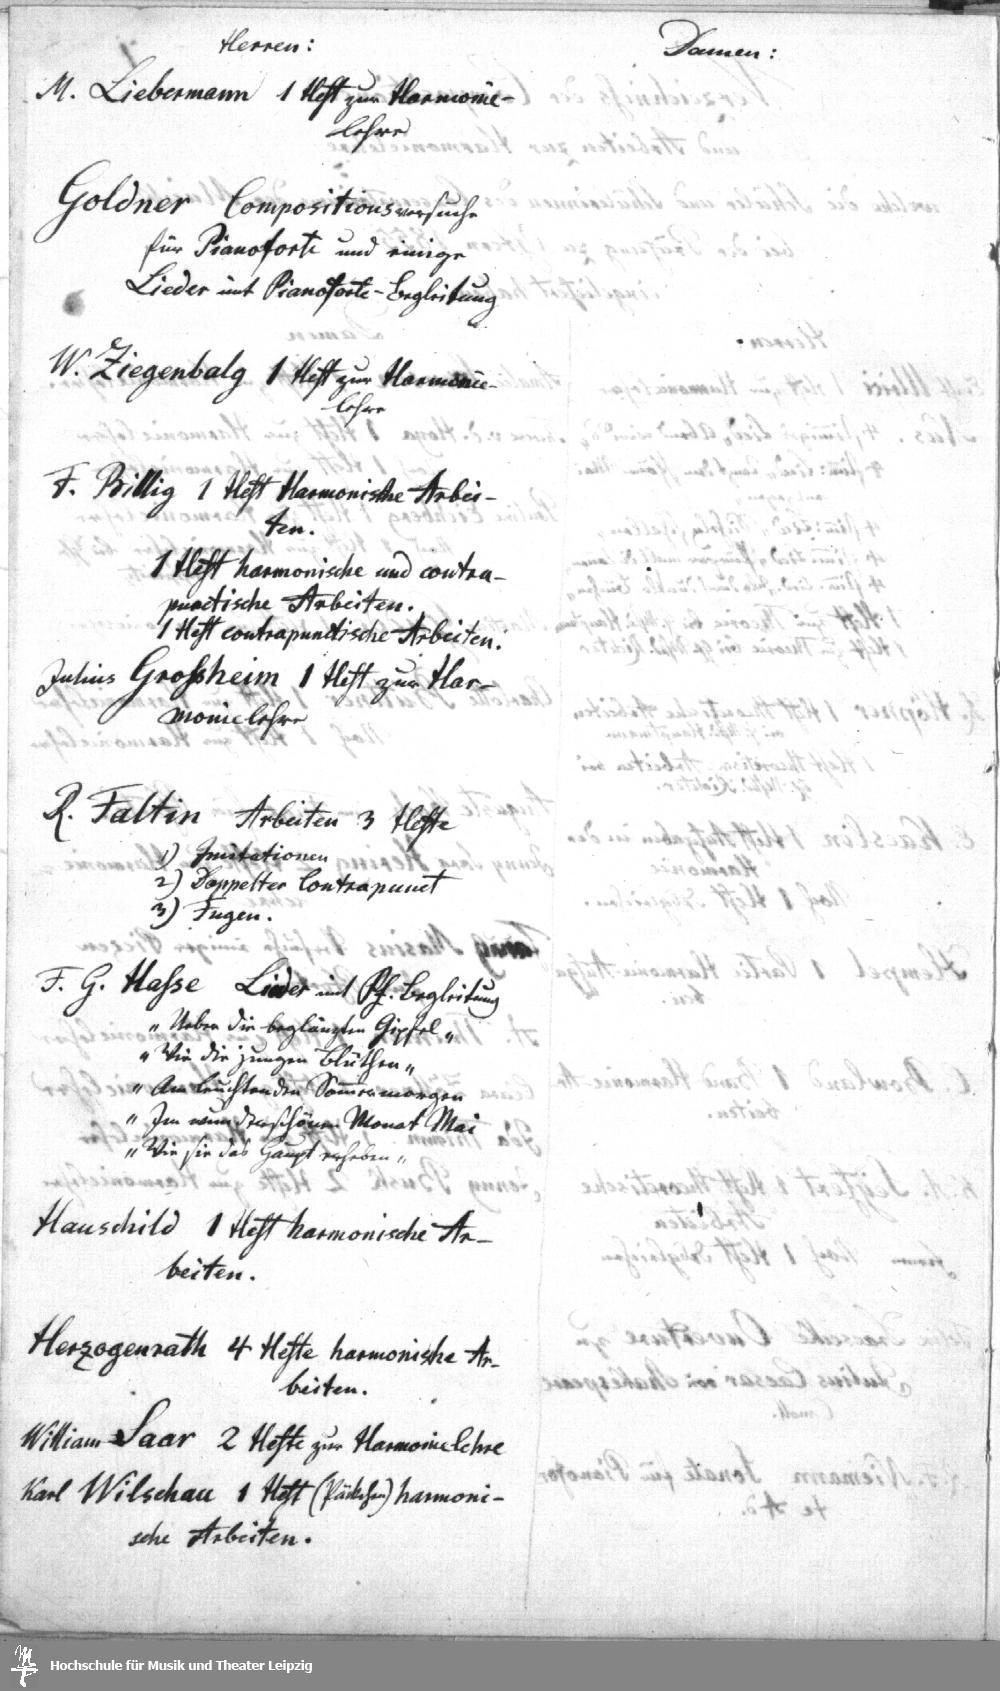 Herren:
Damen:
M. Liebermann 1 Heft zur Harmonie-
lehre
Goldner Compositionsversuche
für Pianoforte und einige
Lieder mit Pianoforte-Begleitung
W. Ziegenbalg 1 Heft zur Harmonie-
lehre
F. Billig 1 Heft Harmonische Arbei-
ten.
1 Heft harmonische und contra-
punctische Arbeiten.
1 Heft contrapunctische Arbeiten.
Julius Großheim 1 Heft zur Har-
monielehre
R. Faltin Arbeiten 3 Hefte
1) Imitationen
2) Doppelter Contrapunct
3) Fugen.
F. G. Haße Lieder mit Pf. Begleitung
„Ueber die beglänzten Gipfel„
„Wie die jungen Blüthen„
„Am leuchtenden Sommermorgen
„Im wunderschönen Monat Mai
„Wie sie das Haupt erheben„
Hauschild 1 Heft harmonische Ar-
beiten.
Herzogenrath 4 Hefte harmonische Ar-
beiten.
William Saar 2 Hefte zur Harmonielehre
Karl Wilschau 1 Heft (Päckchen) harmoni-
sche Arbeiten.
Hochschule für Musik und Theater Leipzig